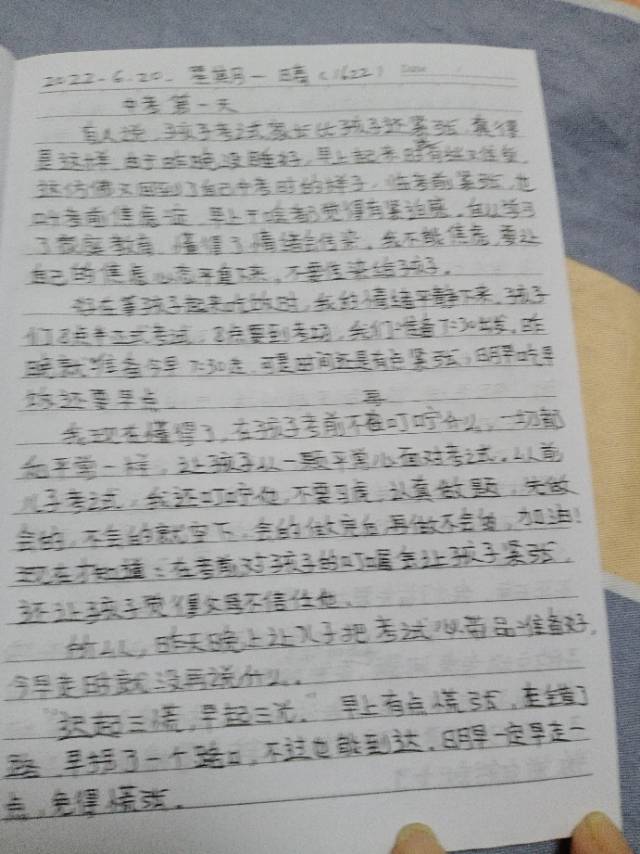 2022.6.20. 星期一 晴(1622) Date
中考第一天
有人说,孩子考试家长比孩子还紧张,真得
是这样,由于昨晚没睡好,早上起来时有些疲惫,
这仿佛又回到了自己中考时的样子,临考前紧张,也
叫考前焦虑症,早上干啥都觉得有紧迫感。自从学习
了家庭教育,懂得了情绪会传染,我不能焦虑,要让
自己的焦虑心态平复下来,不要传染给孩子。
好在等孩子起来吃饭时,我的情绪平静下来,孩子
们8点半正式考试,8点要到考场,我们准备7:30出发,昨
晚就准备今早7:30走,可是时间还是有点紧张,明早吃早
饭还要早点
我现在懂得了,在孩子考前不再叮咛什么,一切都
和平常一样,让孩子以一颗平常心面对考试。以前
儿子考试,我还叮咛他,不要马虎,认真做题,先做
会的,不会的就空下,会的做完后,再做不会的,加油!
现在才知道:在考前对孩子的叮嘱会让孩子紧张,
还让孩子觉得父母不信任他。
所以,昨天晚上让儿子把考试必带品准备好,
今早走时就没再说什么。
"迟起三慌,早起三光。"早上有点慌张,走错了
路,早拐了一个路口,不过也能到达,明早一定早走一
点,免得慌张。